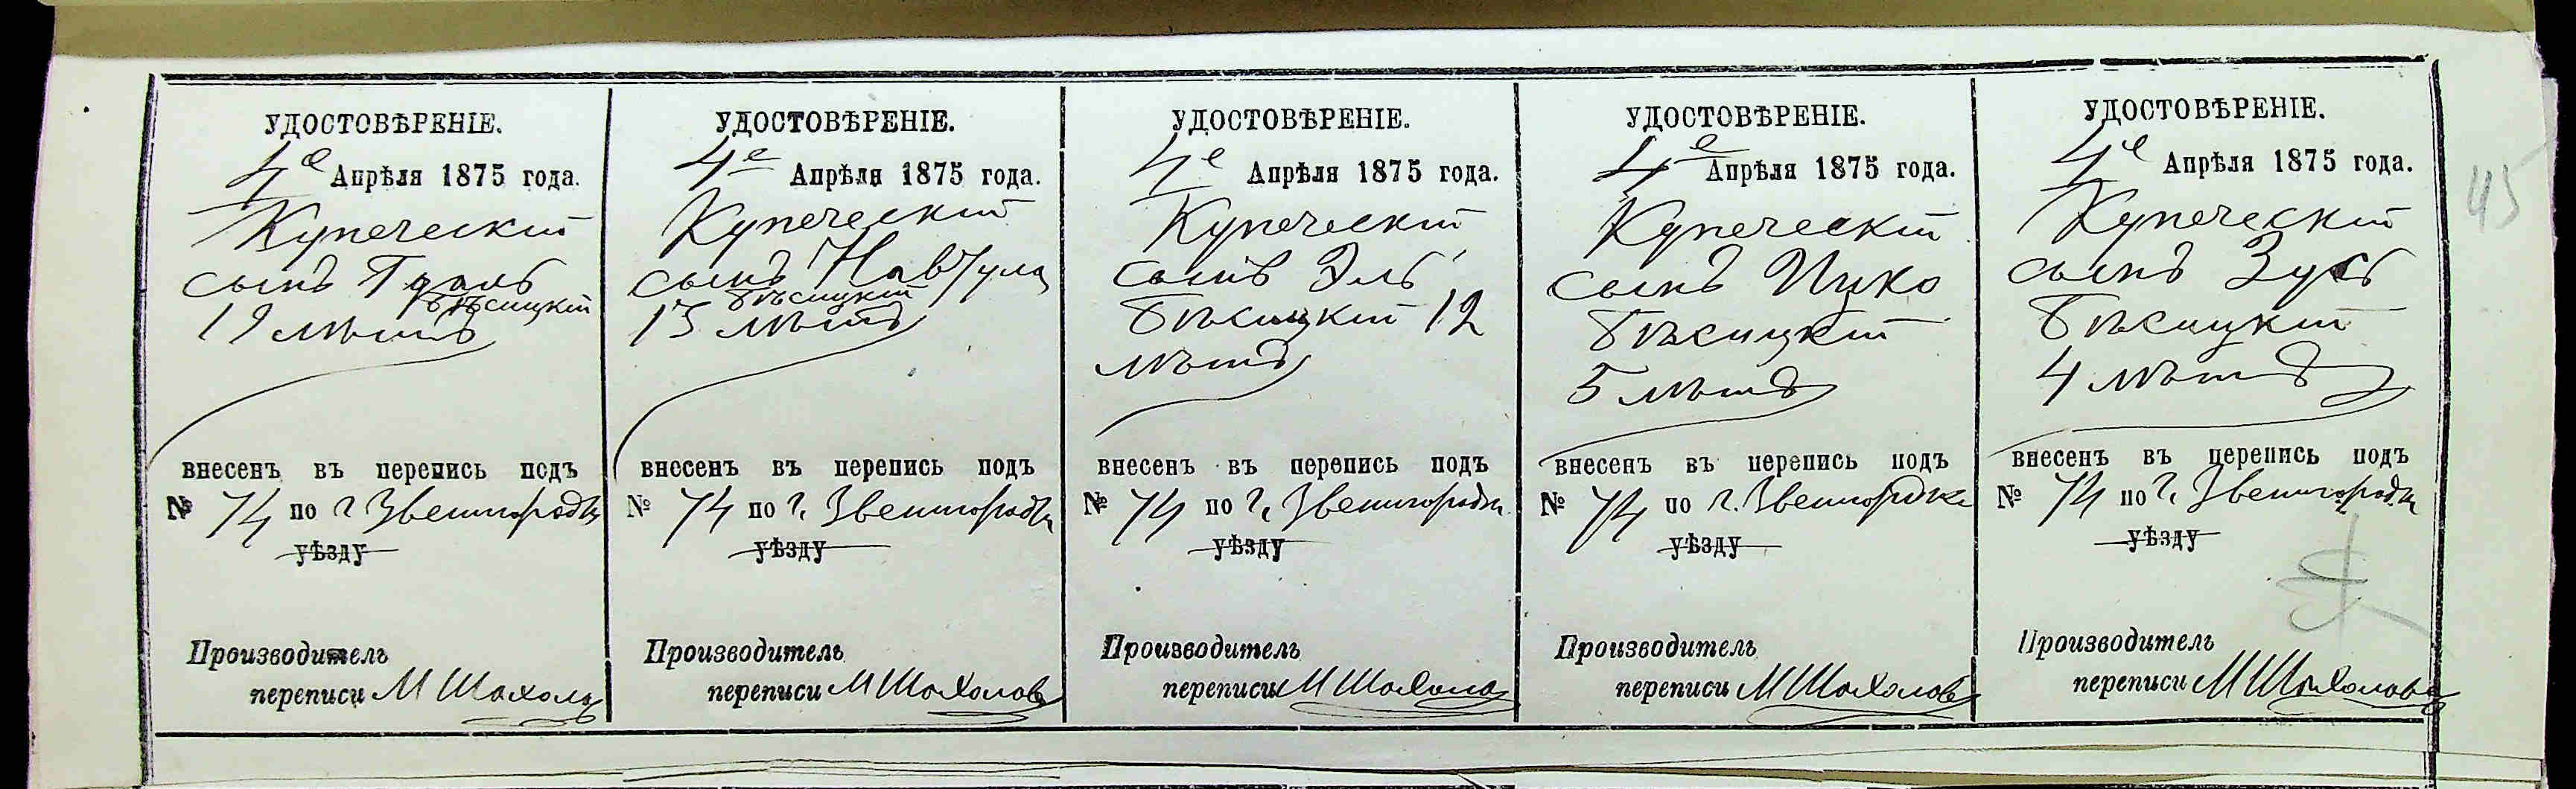 УДОСТОВѢРЕНІЕ.
4е Апрѣля 1875 года.
Купеческій
сынъ
Бѣсицкій
19 лѣтъ
внесенъ въ перепись подъ
№ 74 по г Звенигородкѣ
уѣзду
Производитель
переписи М Шахолов
УДОСТОВѢРЕНІЕ.
4е Апрѣля 1875 года.
Купеческій
сынъ Нафтула
Бѣсицкій
13 лѣтъ
внесенъ въ перепись подъ
№ 74 по г. Звенигородкѣ
уѣзду
Производитель
переписи М Шахолов
УДОСТОВѢРЕНІЕ.
4е Апрѣля 1875 года.
Купеческій
сынъ Эль
Бѣсицкій 12
лѣтъ
внесенъ въ перепись подъ
№ 74 по г. Звенигородкѣ
уѣзду
Производитель
переписи М Шахолов
УДОСТОВѢРЕНІЕ.
4е Апрѣля 1875 года.
Купеческій
сынъ Ицко
Бѣсицкій
5 лѣтъ
внесенъ въ перепись подъ
№ 74 по г. Звенигородкѣ
уѣзду
Производитель
переписи М Шахолов
УДОСТОВѢРЕНІЕ.
4е Апрѣля 1875 года.
Купеческій
сынъ Зусь
Бѣсицкій
4 лѣтъ
внесенъ въ перепись подъ
№ 74 по г. Звенигородкѣ
уѣзду
Производитель
переписи М Шахолов
45